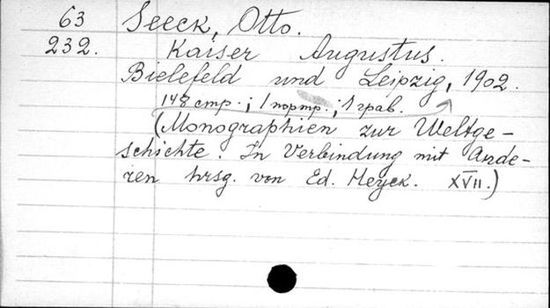 63 Seeck, Otto.
232. Kaiser Augustus.
Bielefeld und Leipzig, 1902.
148 стр.; 1 портр.; 1 грав.
(Monographien zur Weltge-
schichte. In Verbindung mit Ande-
ren hrsg. von Ed. Heyck. XVII.)